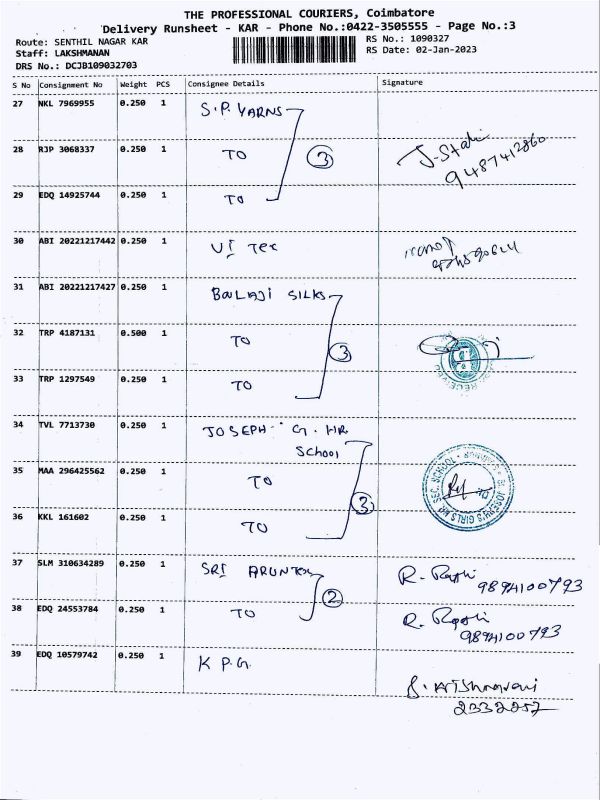 THE PROFESSIONAL COURIERS, Coimbatore
Delivery Runsheet - KAR - Phone No.:0422-3505555 - Page No.:3
Route: SENTHIL NAGAR KAR
RS No.: 1090327
Staff: LAKSHMANAN
RS Date: 02-Jan-2023
DRS No.: DCJB109032703
S No Consignment No Weight PCS Consignee Details Signature
27 NKL 7969955 0.250 1 S.P. YARNS
28 RJP 3068337 0.250 1 TO 3 9487412860
29 EDQ 14925744 0.250 1 TO
30 ABI 20221217442 0.250 1 VI Tex
31 ABI 20221217427 0.250 1 BALAJI SILKS
32 TRP 4187131 0.500 1 TO 3
33 TRP 1297549 0.250 1 TO
34 TVL 7713730 0.250 1 JOSEPH G. HR
School
35 MAA 296425562 0.250 1 TO 3 ST. JOSEPH'S GIRLS HR. SEC. SCHOOL
36 KKL 161602 0.250 1 TO
37 SLM 310634289 0.250 1 SRI R.
9894100793
38 EDQ 24553784 0.250 1 TO 2 R.
9894100793
39 EDQ 10579742 0.250 1 K P.G.
2332257